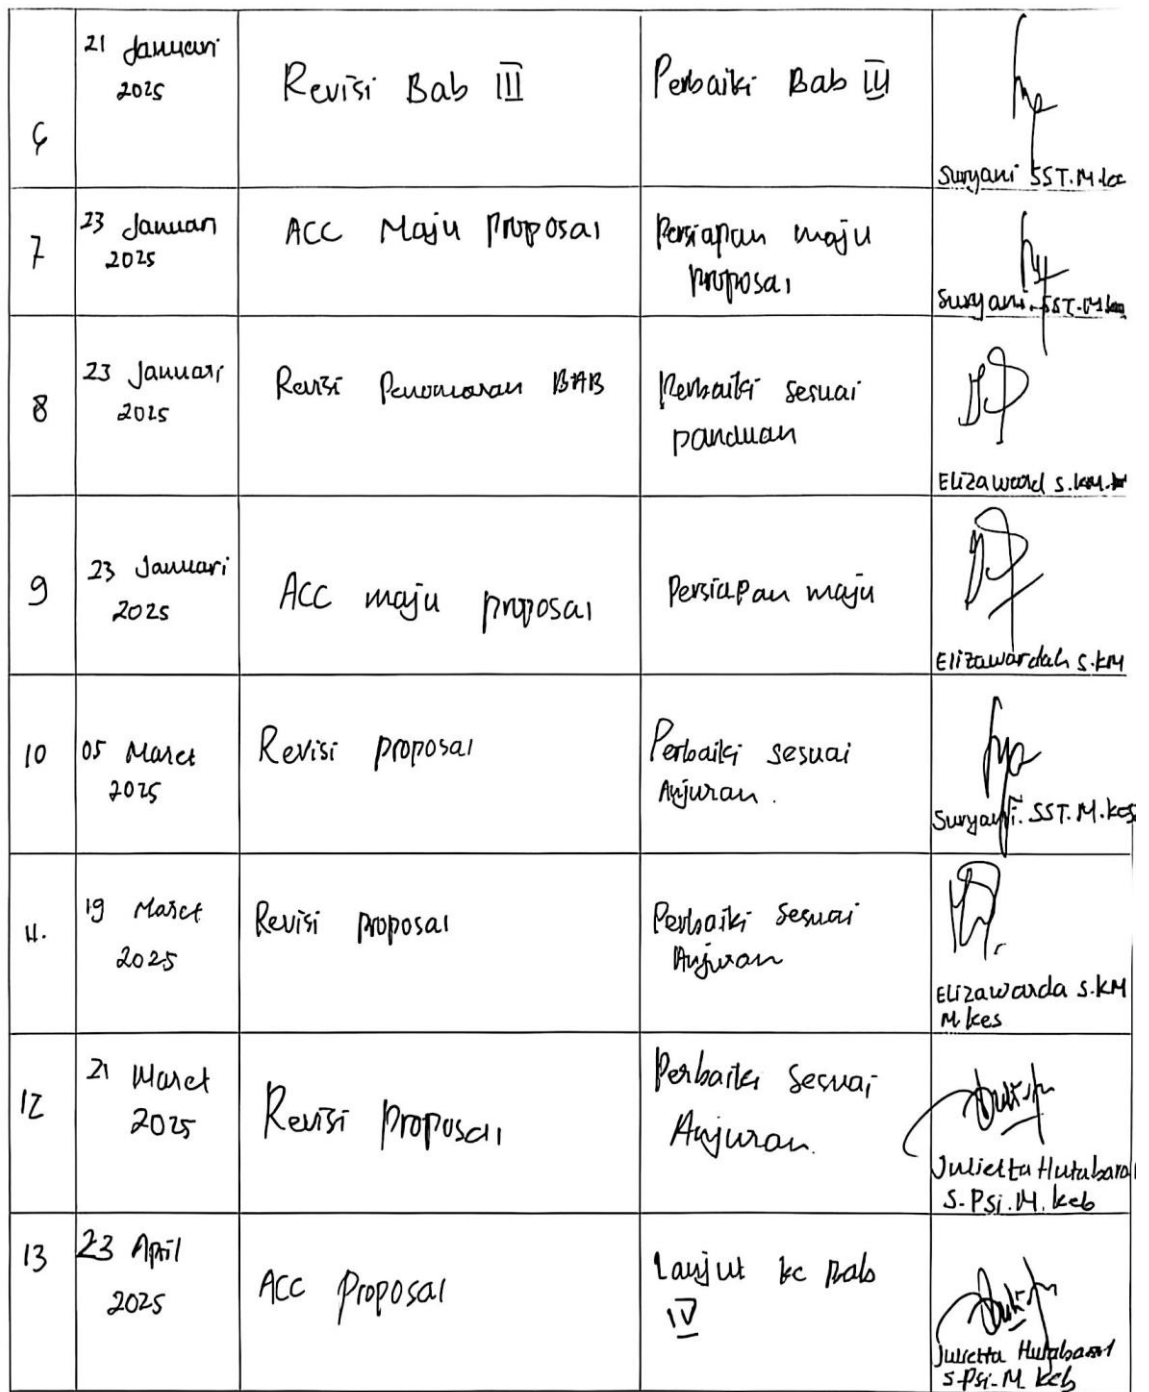 6
21 Januari
2025
Revisi Bab III
Perbaiki Bab III
Suryani SST.M.kes
7
23 Januari
2025
ACC Maju proposal
Persiapan maju
proposal
Suryani. SST.M.kes
8
23 Januari
2025
Revisi Penomoran BAB
Perbaiki sesuai
panduan
Elizaward S.KM.
9
23 Januari
2025
ACC maju proposal
Persiapan maju
Elizawardah S.KM
10
05 Maret
2025
Revisi proposal
Perbaiki sesuai
Anjuran.
Suryani. SST. M.kes
11.
19 Maret
2025
Revisi proposal
Perbaiki sesuai
Anjuran
Elizawarda S.KM
M.kes
12
21 Maret
2025
Revisi Proposal
Perbaiki Sesuai
Anjuran.
Julietta Hutabara
S.Psi.M.keb
13
23 April
2025
ACC Proposal
Lanjut ke Bab
IV
Julietta Hutabarat
S.Psi.M keb